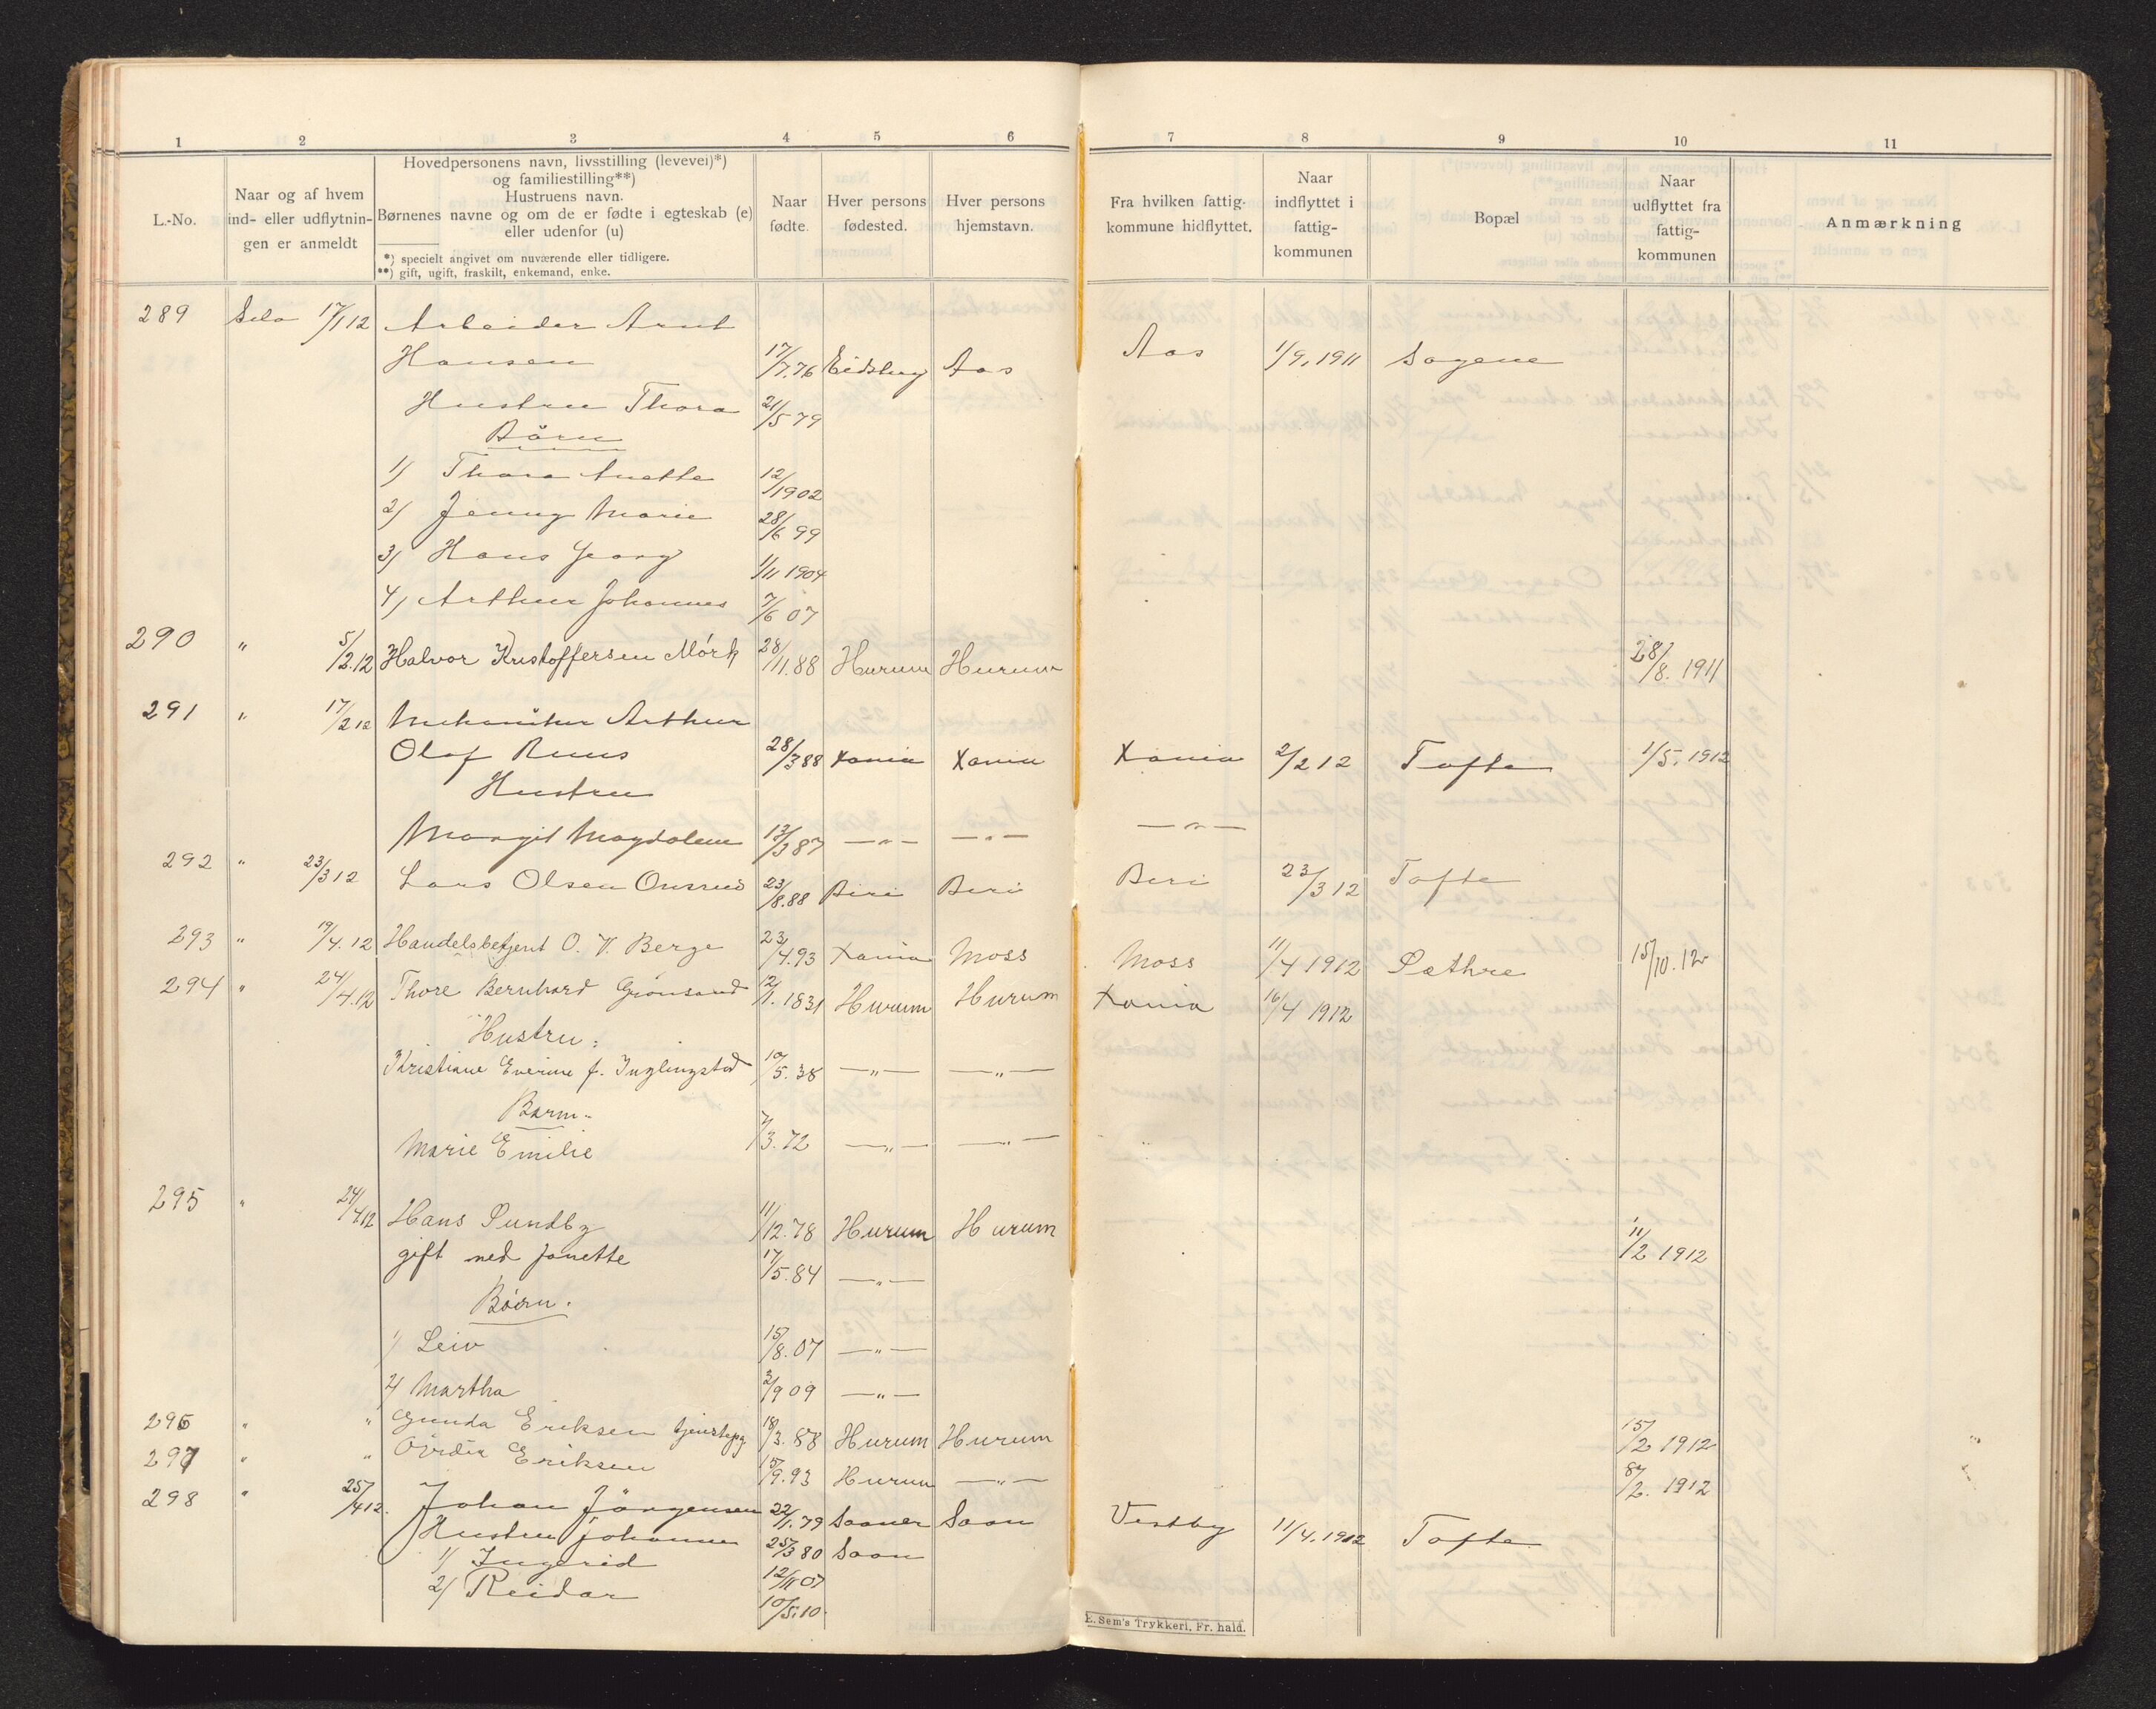 1 2 3 4 5 6 7 8 9 10 11
L.-No.
Naar og af hvem
ind- eller udflytnin-
gen er anmeldt
Hovedpersonens navn, livsstilling (levevei)*)
og familiestilling**)
Hustruens navn.
Børnenes navne og om de er fødte i egteskab (e)
eller udenfor (u)
*) specielt angivet om nuværende eller tidligere.
**) gift, ugift, fraskilt, enkemand, enke.
Naar
fødte.
Hver persons
fødested.
Hver persons
hjemstavn.
Fra hvilken fattig-
kommune hidflyttet.
Naar
indflyttet i
fattig-
kommunen
Bopæl
Naar
udflyttet fra
fattig-
kommunen
Anmærkning
289 Selv 17/1 12 Arbeider Arnt
Hansen 17/7.76 Eidsberg Aas Aas 1/9.1911 Sagene
Hustru Thora 21/5 79
Börn
1) Thora Anette 12/1902
2) Jenny Marie 28/6 99
3) Hans Georg 1/11 1904
4) Arthur Johannes 7/6 07
290 " 5/2.12 Halvor Kristoffersen Mörk 28/11.88 Hurum Hurum 28/8.1911
291 " 17/2 12 Mekaniker Arthur
Olaf Ruus 28/3 88 Xania Xania Xania 2/2 12 Tofte 1/5.1912
Hustru
Margit Magdalene 13/3 87 —"— —"— —"—
292 " 23/3 12 Lars Olsen Onsrud 23/8.88 Biri Biri Biri 23/3 12 Tofte
293 " 19/4.12 Handelsbetjent O. V. Berge 23/4.93 Xania Moss Moss 11/4 1912 Sæthre 15/10.12
294 " 24/4.12 Thore Bernhard Grönsand 12/1.1831 Hurum Hurum Xania 16/4 1912
Hustru:
Kristiane Everine f. Inglingstad 10/5.38 —"— —"—
Barn.
Marie Emilie 7/3.72 —"— —"—
295 " 24/4 12 Hans Sundby 11/12.78 Hurum Hurum 11/2 1912
gift med Janette 17/5.84 —"—
Börn.
1/ Leiv 15/8.07 —"—
2/ Martha 2/9 09 —"—
296 " " Gunda Eriksen tjenstepg. 18/3.88 Hurum Hurum 15/2 1912
297 " " Eriksen 15/9.93 Hurum —"— /2.1912
298 " 25/4 12. Johan Jörgensen 22/1.79 Saaner Saan Vestby 11/4.1912 Tofte
Hustru Johanne 25/3 80 Saan
1/ Ingerid 12/11 07
2/ Reidar 10/5.10.
E. Sem's Trykkeri, Fr. hald.